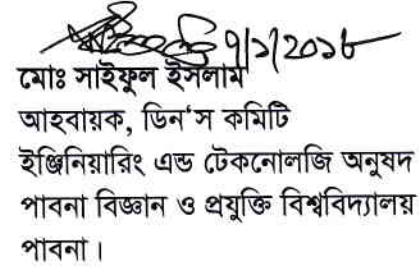 ৭/১/২০১৮
মোঃ সাইফুল ইসলাম
আহবায়ক, ডিন'স কমিটি
ইঞ্জিনিয়ারিং এন্ড টেকনোলজি অনুষদ
পাবনা বিজ্ঞান ও প্রযুক্তি বিশ্ববিদ্যালয়
পাবনা।